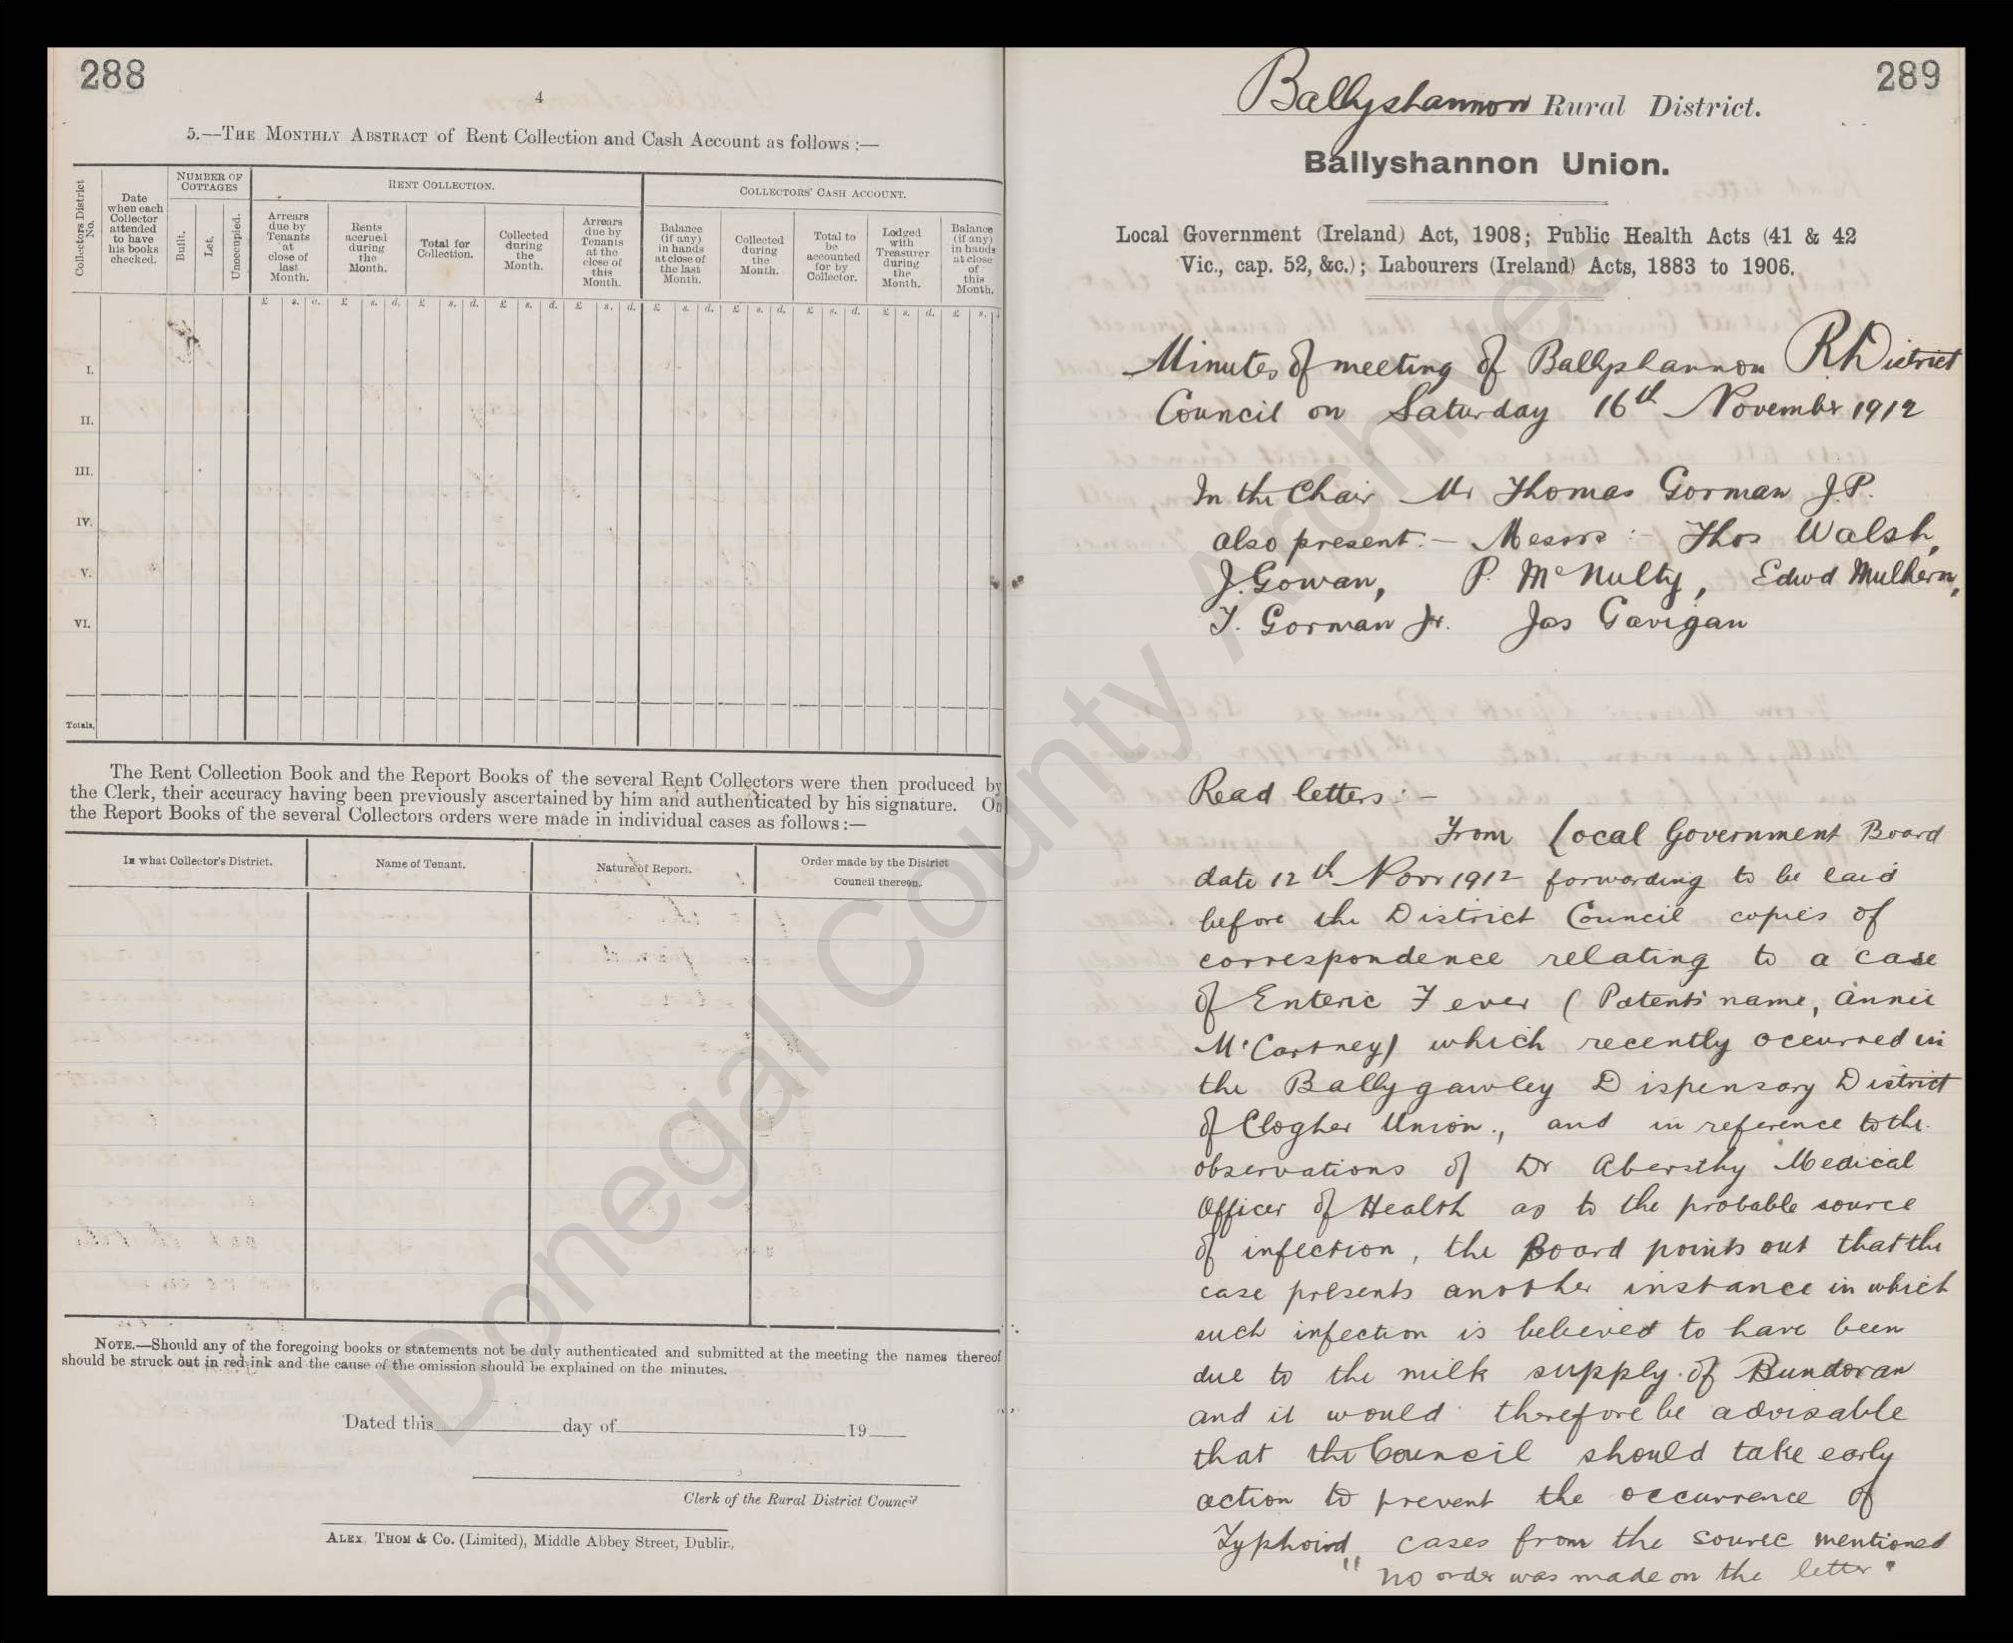 288
4
5.—THE MONTHLY ABSTRACT of Rent Collection and Cash Account as follows :—
Collectors District No.
Date when each Collector attended to have his books checked.
NUMBER OF COTTAGES
Built.
Let.
Unoccupied.
RENT COLLECTION.
Arrears due by Tenants at close of last Month.
Rents accrued during the Month.
Total for Collection.
Collected during the Month.
Arrears due by Tenants at the close of this Month.
COLLECTORS' CASH ACCOUNT.
Balance (if any) in hands at close of the last Month.
Collected during the Month.
Total to be accounted for by Collector.
Lodged with Treasurer during the Month.
Balance (if any) in hands at close of this Month.
£ s. d. £ s. d. £ s. d. £ s. d. £ s. d. £ s. d. £ s. d. £ s. d. £ s. d. £ s.
I.
II.
III.
IV.
V.
VI.
Totals,
The Rent Collection Book and the Report Books of the several Rent Collectors were then produced by
the Clerk, their accuracy having been previously ascertained by him and authenticated by his signature. On
the Report Books of the several Collectors orders were made in individual cases as follows:—
In what Collector's District.
Name of Tenant.
Nature of Report.
Order made by the District
Council thereon.
NOTE.—Should any of the foregoing books or statements not be duly authenticated and submitted at the meeting the names thereof
should be struck out in red ink and the cause of the omission should be explained on the minutes.
Dated this day of 19
Clerk of the Rural District Council
ALEX. THOM & Co. (Limited), Middle Abbey Street, Dublin.
289
Ballyshannon Rural District.
Ballyshannon Union.
Local Government (Ireland) Act, 1908; Public Health Acts (41 & 42
Vic., cap. 52, &c.); Labourers (Ireland) Acts, 1883 to 1906.
Minutes of meeting of Ballyshannon Rl District
Council on Saturday 16th November 1912
In the Chair Mr Thomas Gorman J.P.
also present :— Messrs :— Thos Walsh,
J. Gowan, P. McNulty, Edwd Mulhern,
T. Gorman Jr. Jas Gavigan
Read letters :—
From Local Government Board
date 12th Novr 1912 forwarding to be laid
before the District Council copies of
correspondence relating to a case
of Enteric Fever (Patents name, Annie
McCartney) which recently occurred in
the Ballygawley Dispensary District
of Clogher Union., and in reference to the
observations of Dr Abersthy Medical
Officer of Health as to the probable source
of infection, the Board points out that the
case presents another instance in which
such infection is believed to have been
due to the milk supply of Bundoran
and it would therefore be advisable
that the Council should take early
action to prevent the occurrence of
Typhoid cases from the source mentioned
"No order was made on the letter"
Donegal County Archives